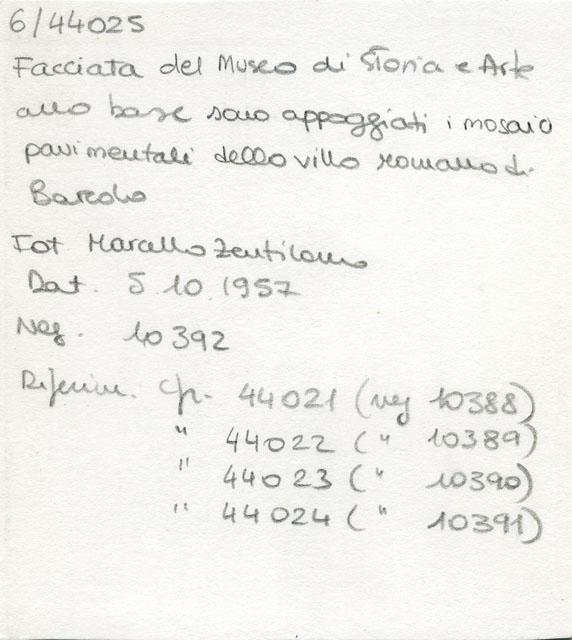 6/44025
Facciata del Museo di Storia e Arte
alla base sono appoggiati i mosaici
pavimentali della villa romana di
Barcola
Fot Marcello Zentilomo
Dat. 5.10.1957
Neg. 10392
Riferim. cfr. 44021 (neg 10388)
" 44022 ( " 10389)
" 44023 ( " 10390)
" 44024 ( " 10391)